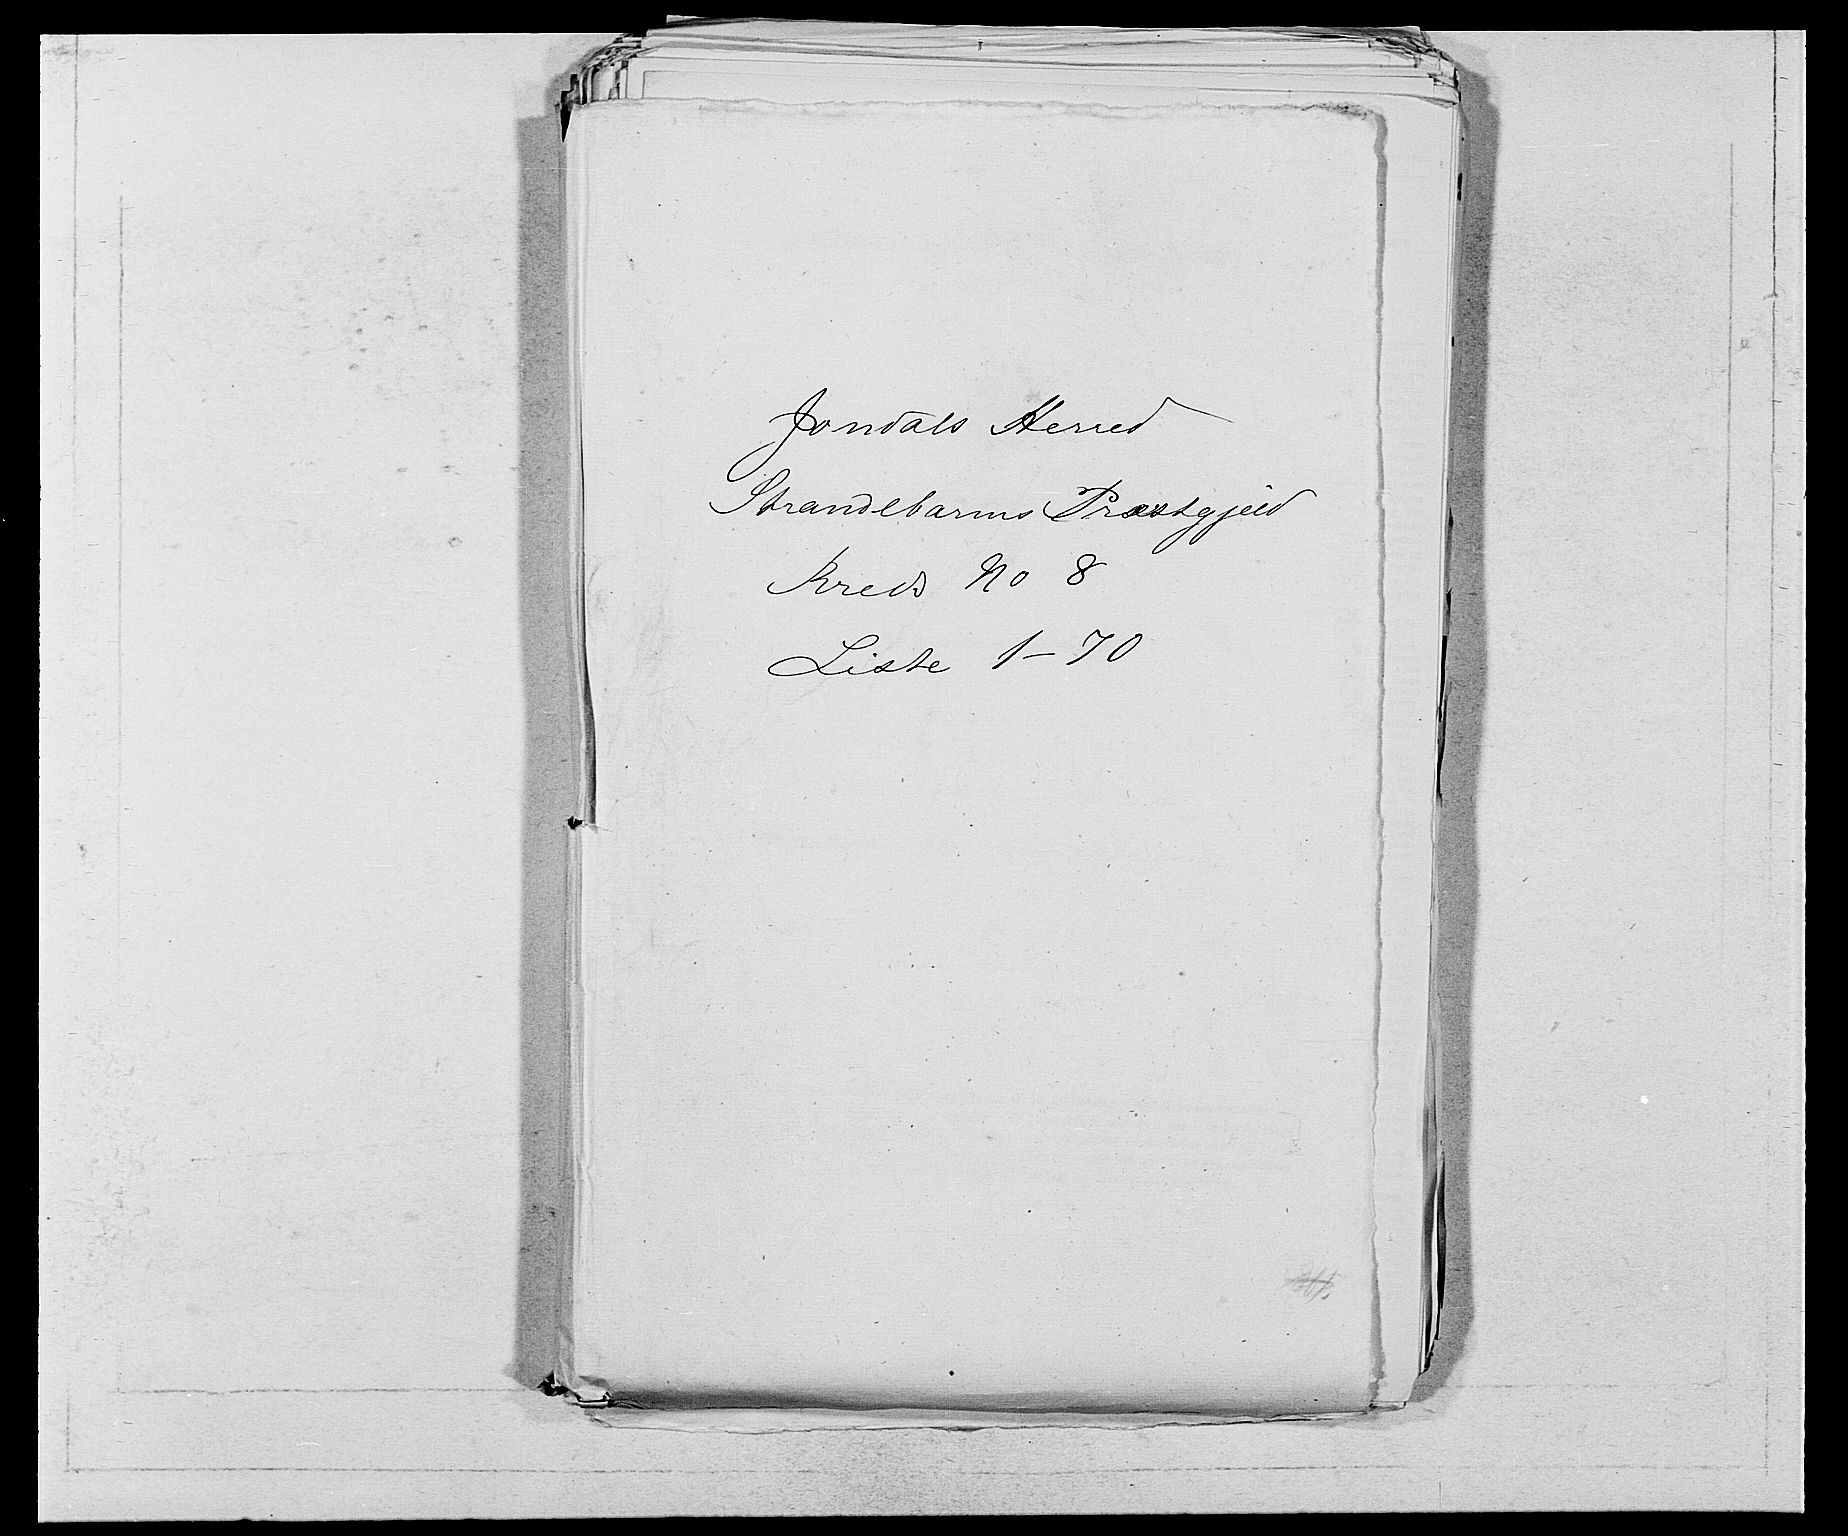 Jondals Herred
Strandebarms Præstgjeld
Kreds No 8
Liste 1-70